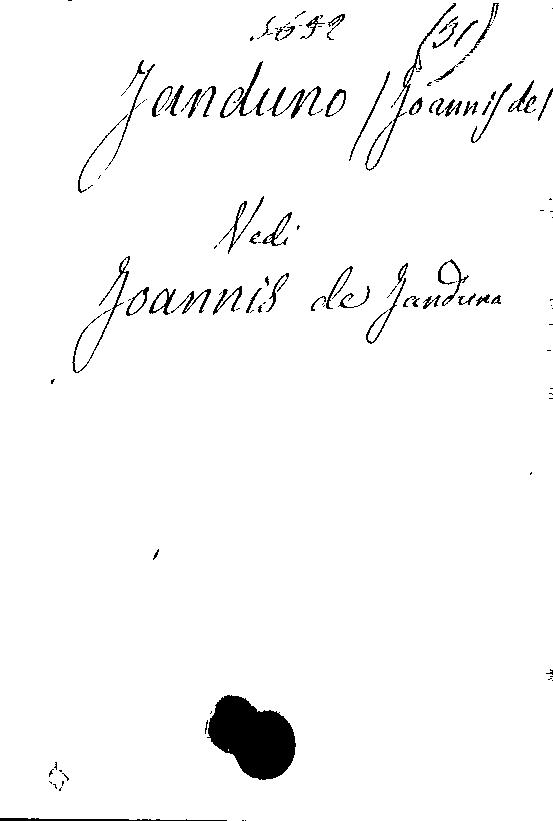 5692 (31)
Janduno (Joannis de)
Vedi
Joannis de Janduna